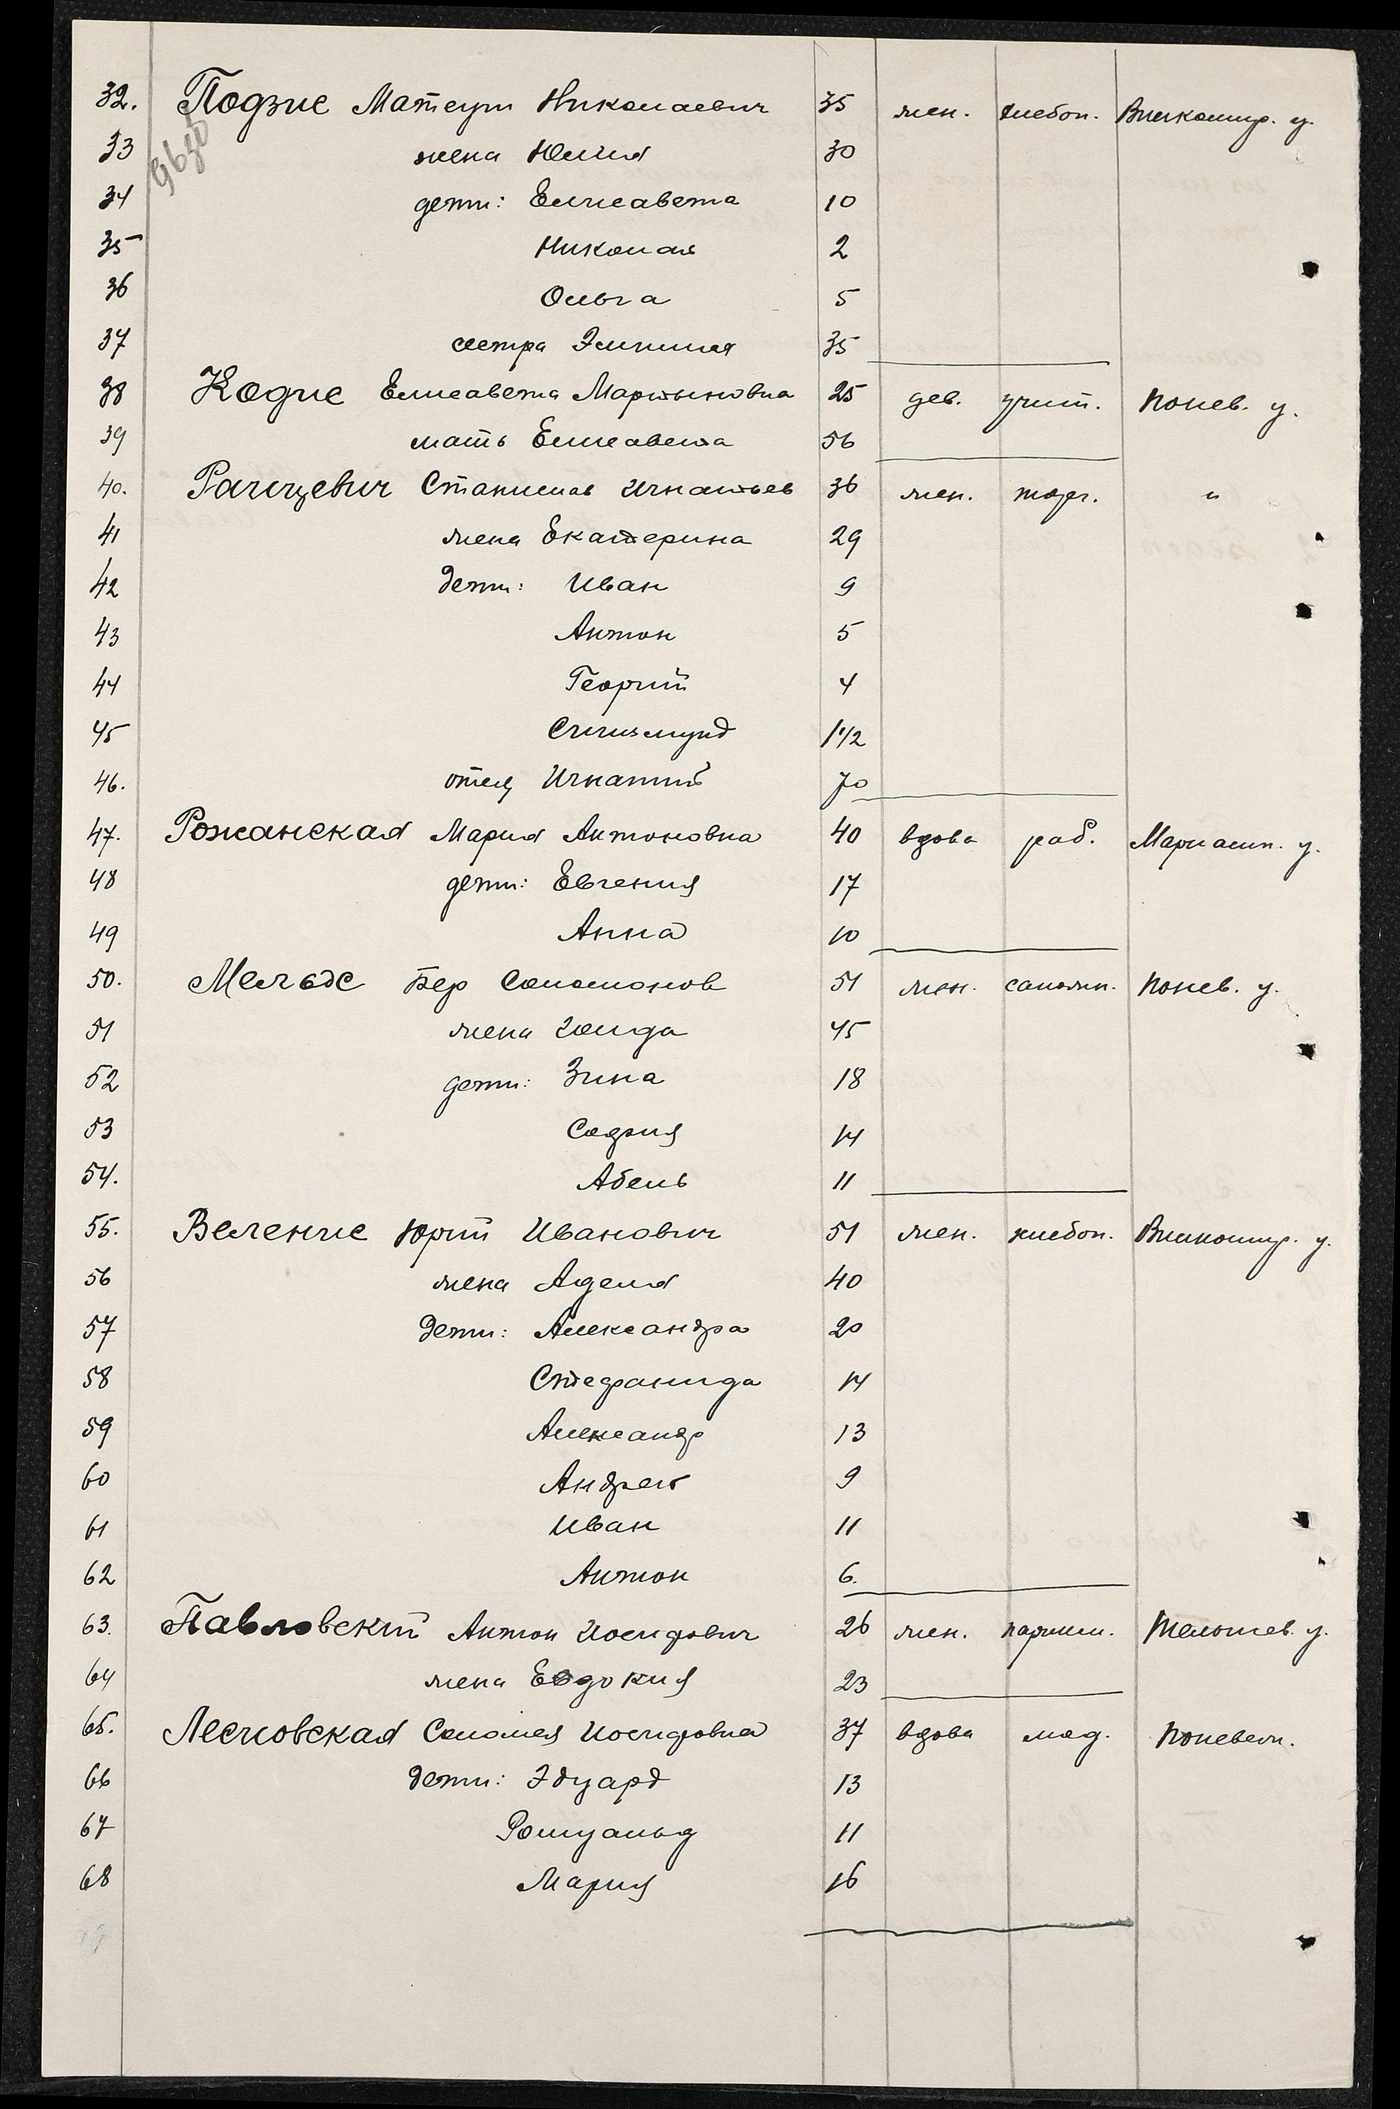 32. Подзис Матеуш Николаевич 35 жен. хлебоп. Вилкомир. у.
33 жена Юлия 30
34 дети: Елисавета 10
35 Николай 2
36 Ольга 5
37 сестра Эмилия 35
38 Кодис Елисавета Мартыновна 25 дев. учит. Понев. у.
39 мать Елисавета 56
40. Станислав Игнатьев 36 жен. торг. "
41 жена Екатерина 29
42 дети: Иван 9
43 Антон 5
44 Георгий 4
45 Сигизмунд 1 1/2
46. отец Игнатий 70
47. Рожанская Мария Антоновна 40 вдова раб. Мариамп. у.
48 дети: Евгения 17
49 Анна 10
50. Мельдс Бер Соломонов 51 жен. сапожн. Понев. у.
51 жена 45
52 дети: Зина 18
53 София 14
54. Абель 11
55. Веленис Юрий Иванович 51 жен. хлебоп. Вилкомир. у.
56 жена Аделя 40
57 дети: Александра 20
58 Стефанида 14
59 Александр 13
60 Андрей 9
61 Иван 11
62 Антон 6.
63. Павловский Антон Иосифович 26 жен. парикм. Тельшев. у.
64 жена Евдокия 23
65. Лесновская Саломея Иосифовна 37 вдова мед. Поневеж.
66 дети: Эдуард 13
67 Ромуальд 11
68 Мария 16